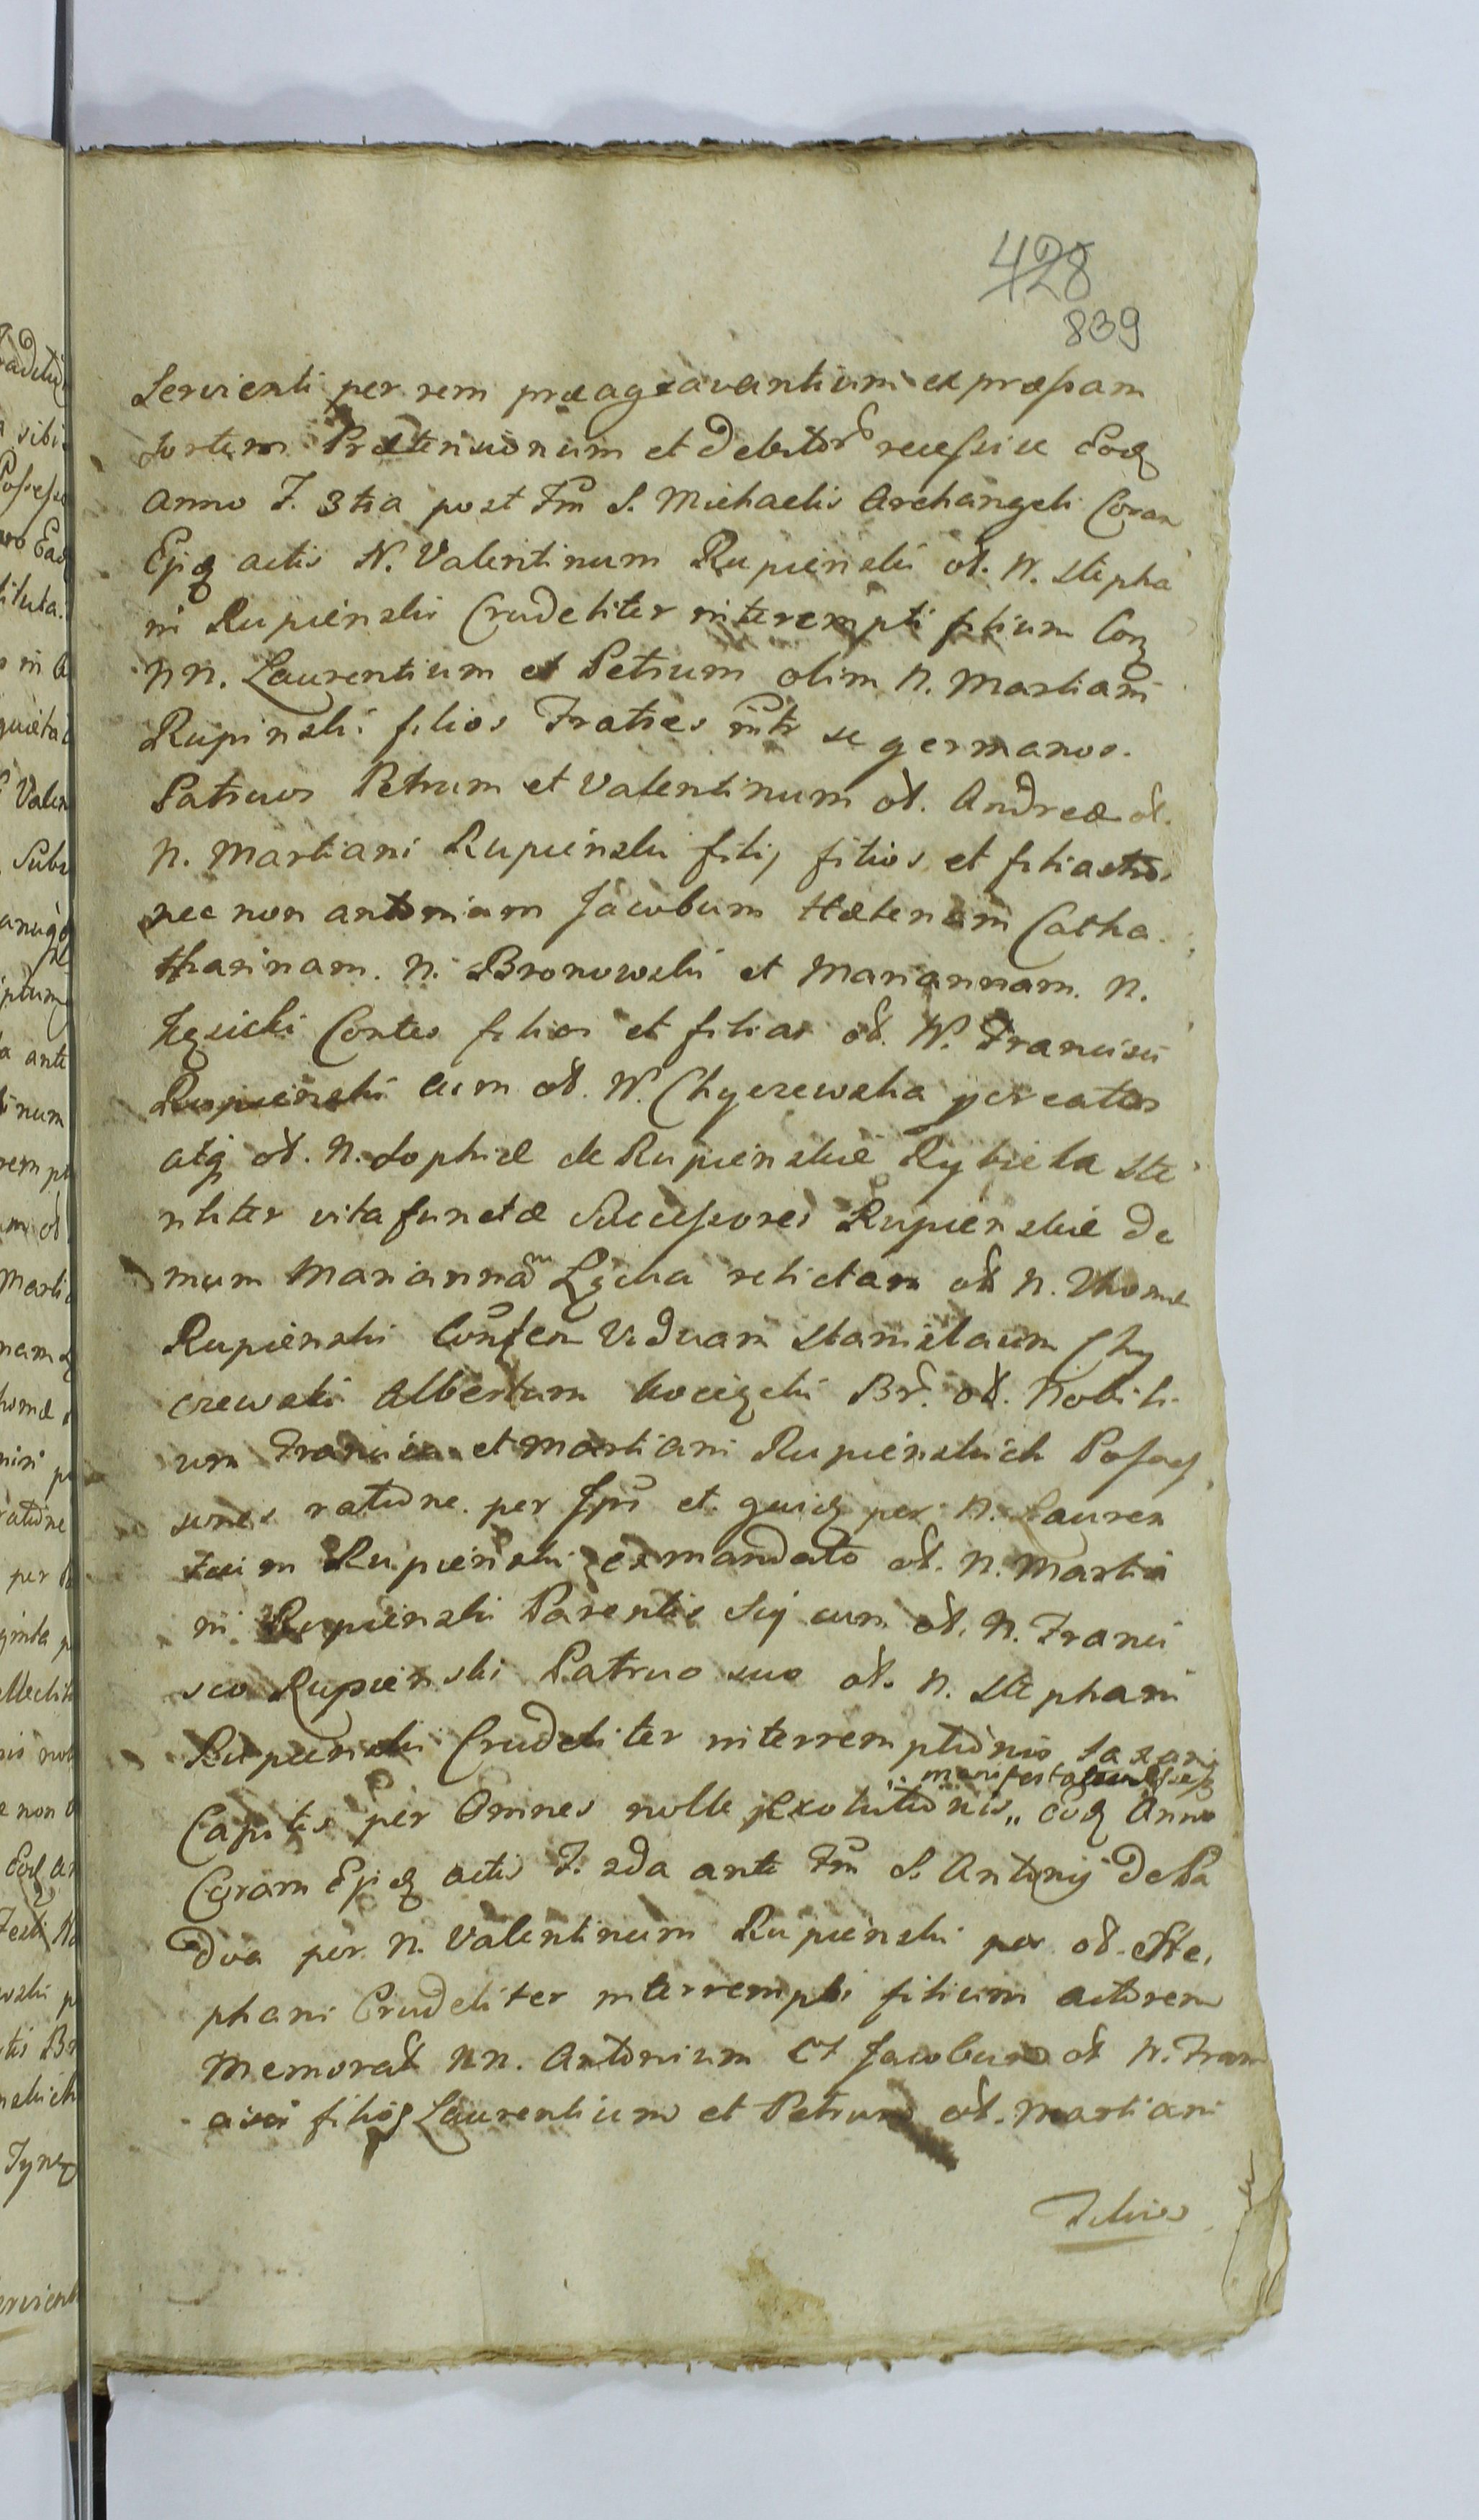 428
839
Servienti per rem præagravantium ex præssam
sortem Prætensionum et debitor recessive Eoq
anno F. 3tia post Fm S. Michaelis Archangeli Coram
Ejq actis N. Valentinum Rupienski ol. N. Stepha
ni Rupienski Crudeliter interempti filium Con
NN. Laurentium et Petrum olim N. Martiani
Rupinski filios Fratres intr se germanos.
Patruos Petrum et Valentinum ol. Andreæ ol.
N. Martiani Rupienski filij filios et filiastros
nec non antonium Jacobum Helenam Catha
tharinam. N. Bronowski et Mariannam. N.
Contes filios et filias ol. N. Francisci
Rupienski cum ol. N. Chyczewska procreatos
atq ol. N. Sophiæ de Rupienskie Rybicka Ste
riliter vita functæ Successores Rupienskie de
mum Marianna Łącka relictam ol N. Thomæ
Rupienski Consten Viduam Stanislaum Chy
czewski Albertum Br. ol. Nobili
um Francisci et Martiani Rupienskich Posses
sores ratione per Jpm et quidq per N. Lauren
tium Rupienski ex mandato ol. N. Martia
ni Rupienski Parentis Sij cum ol. N. Franci
sco Rupienski Patruo suo ol. N. Stephani
Rupienski Crudeliter interremptionis taxam
manifestatum
Capitis per Omnes nolle Exolutionis,, Eoq Anno
Coram Ejq actis F. 2da ante Fm S. Antonij de Pa
dua per N. Valentinum Rupienski per ol. Ste
phani Crudeliter interrempti filium actorem
Memorat NN. Antonium et Jacobum ol N. Fran
cisci filios Laurentium et Petrum ol. Martiani
Filios